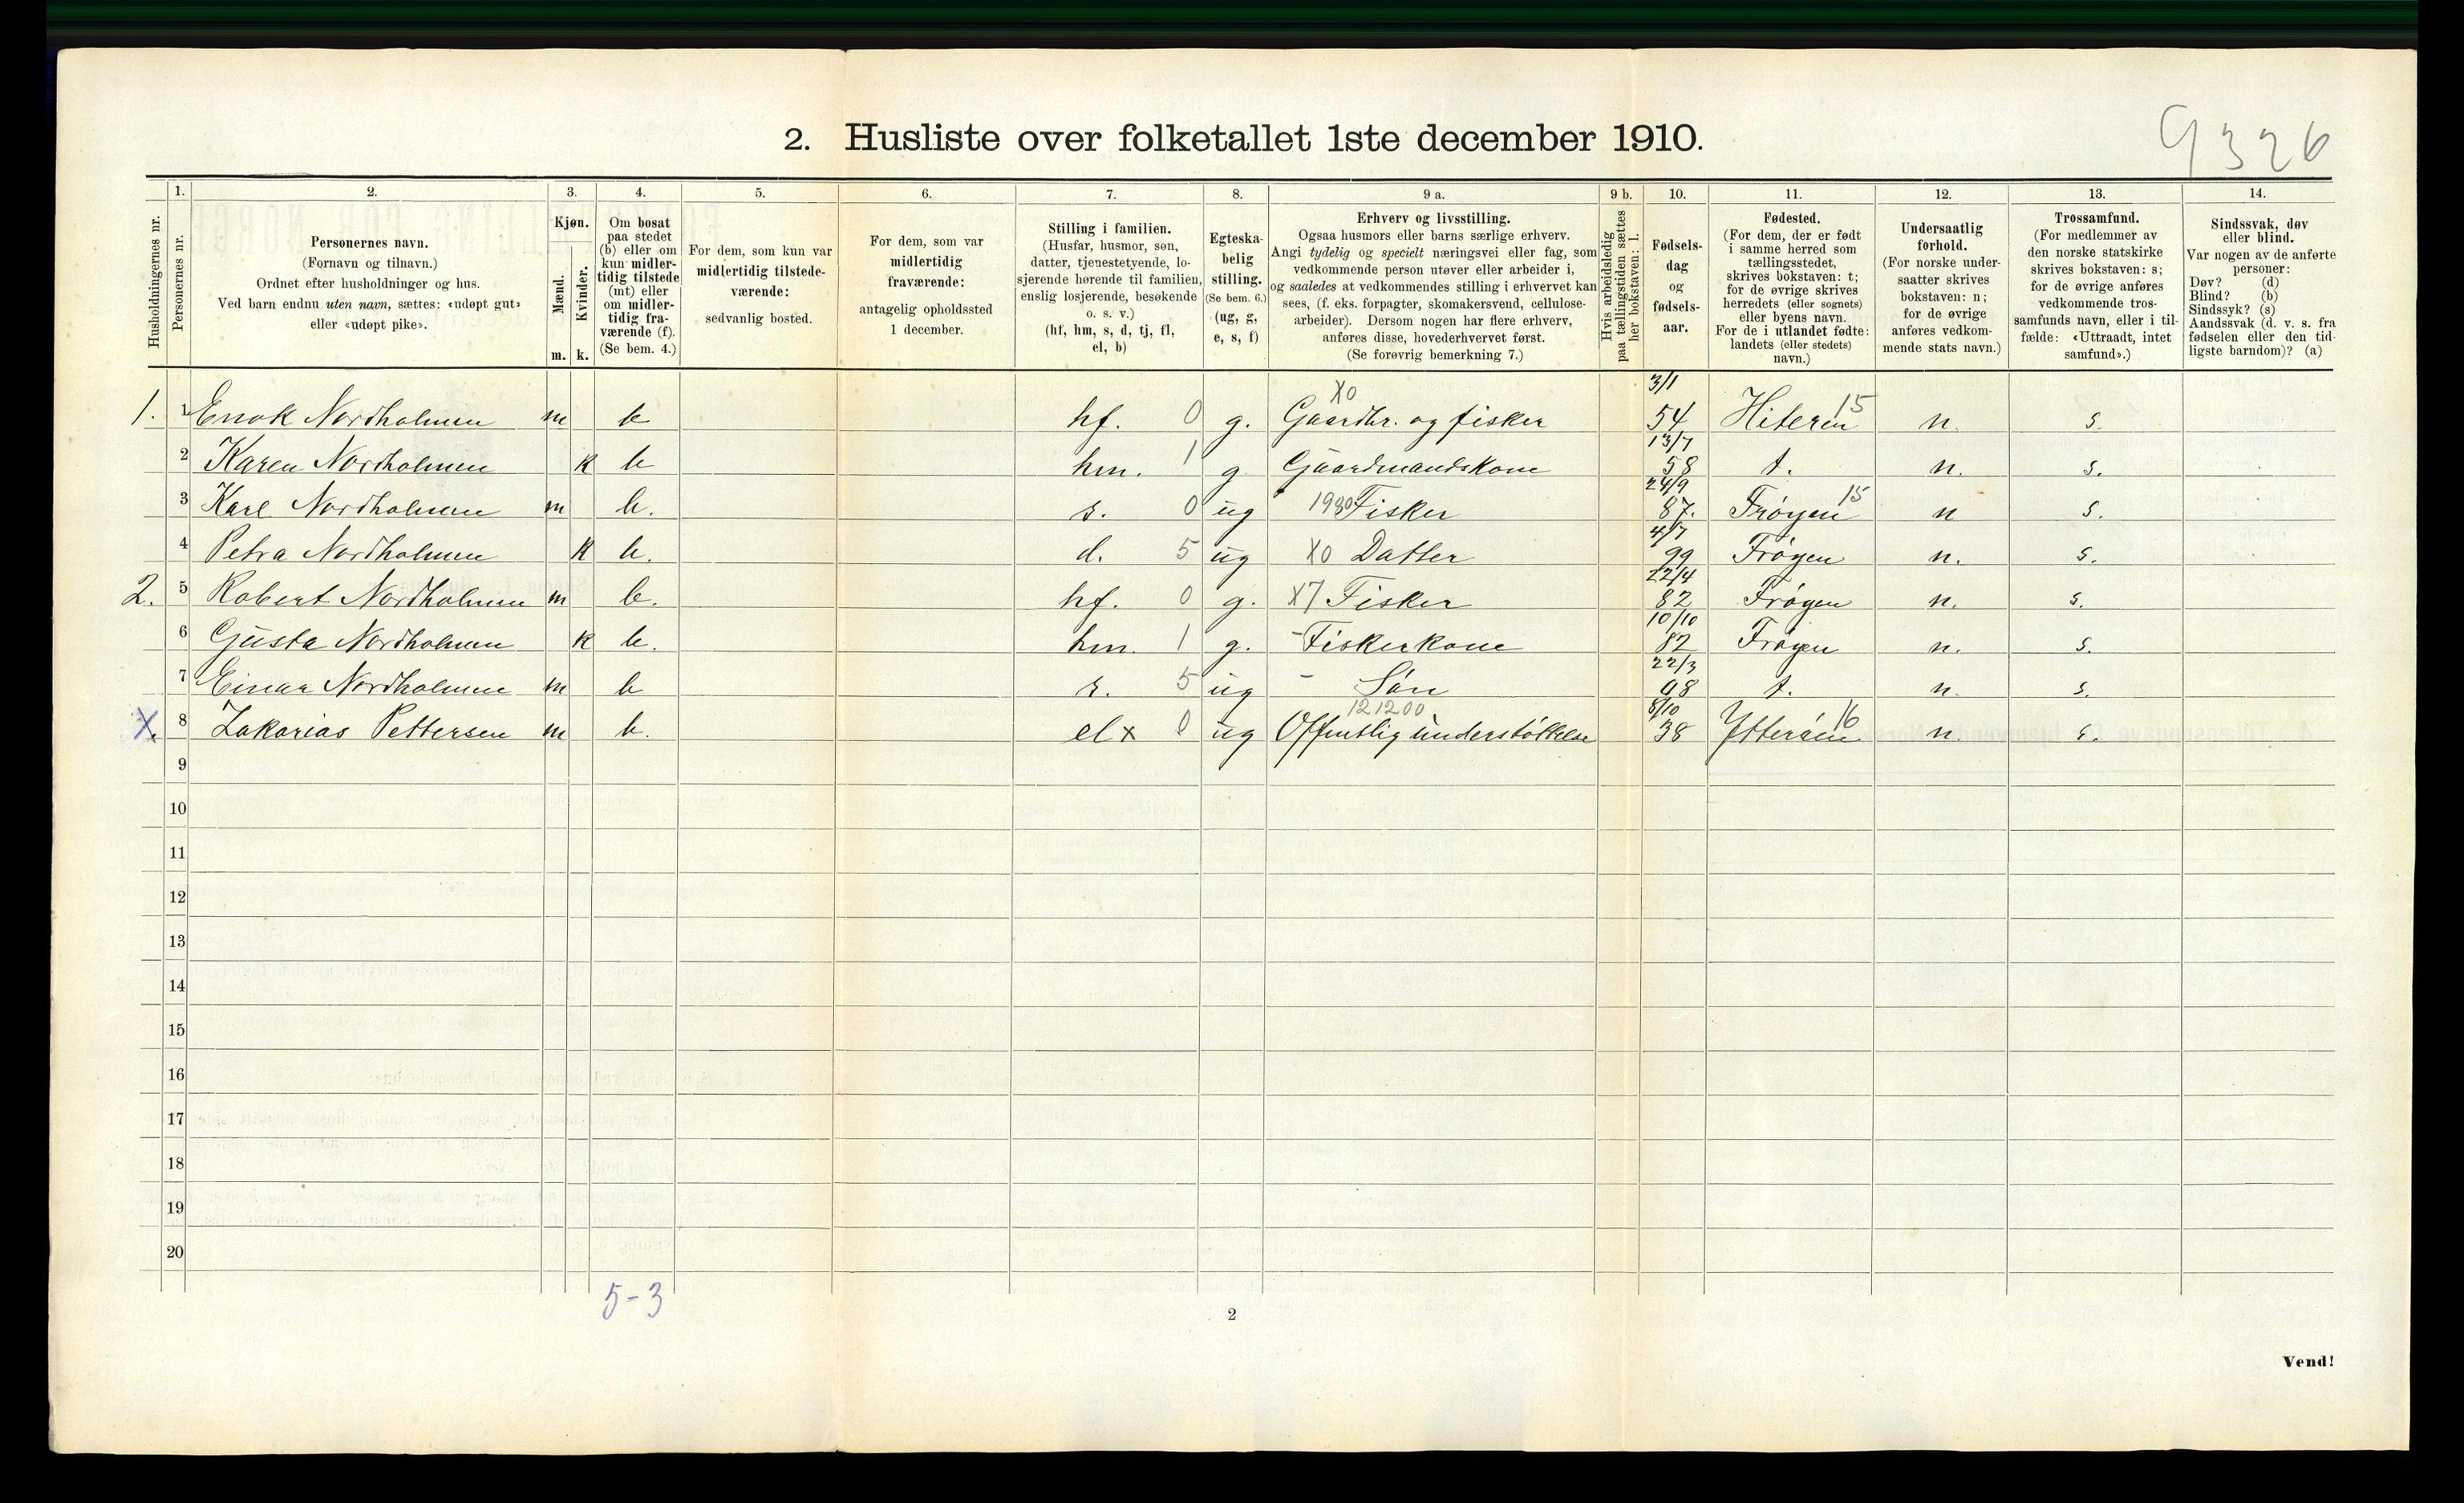 9326
2. Husliste over folketallet 1ste december 1910.
Husholdningernes nr.
1. Personernes nr.
2. Personernes navn. (Fornavn og tilnavn.) Ordnet efter husholdninger og hus. Ved barn endnu uten navn, sættes: «udøpt gut» eller «udøpt pike».
3. Kjøn. Mænd. m. Kvinder. k.
4. Om bosat paa stedet (b) eller om kun midlertidig tilstede (mt) eller om midlertidig fraværende (f). (Se bem. 4.)
5. For dem, som kun var midlertidig tilstedeværende: sedvanlig bosted.
6. For dem, som var midlertidig fraværende: antagelig opholdssted 1 december.
7. Stilling i familien. (Husfar, husmor, søn, datter, tjenestetyende, losjerende hørende til familien, enslig losjerende, besøkende o. s. v.) (hf, hm, s, d, tj, fl, el, b)
8. Egteskabelig stilling. (Se bem. 6.) (ug, g, e, s, f)
9 a. Erhverv og livsstilling. Ogsaa husmors eller barns særlige erhverv. Angi tydelig og specielt næringsvei eller fag, som vedkommende person utøver eller arbeider i, og saaledes at vedkommendes stilling i erhvervet kan sees, (f. eks. forpagter, skomakersvend, cellulosearbeider). Dersom nogen har flere erhverv, anføres disse, hovederhvervet først. (Se forøvrig bemerkning 7.)
9 b. Hvis arbeidsledig paa tællingstiden sættes her bokstaven: l.
10. Fødselsdag og fødselsaar.
11. Fødested. (For dem, der er født i samme herred som tællingsstedet, skrives bokstaven: t; for de øvrige skrives herredets (eller sognets) eller byens navn. For de i utlandet fødte: landets (eller stedets) navn.)
12. Undersaatlig forhold. (For norske undersaatter skrives bokstaven: n; for de øvrige anføres vedkommende stats navn.)
13. Trossamfund. (For medlemmer av den norske statskirke skrives bokstaven: s; for de øvrige anføres vedkommende trossamfunds navn, eller i tilfælde: «Uttraadt, intet samfund».)
14. Sindssvak, døv eller blind. Var nogen av de anførte personer: Døv? (d) Blind? (b) Sindssyk? (s) Aandssvak (d. v. s. fra fødselen eller den tidligste barndom)? (a)
1. 1 Enok Nordholmen m b hf. 0 g. X0 Gaardbr. og fisker 3/1 54 Hiteren 15 n. s.
2 Karen Nordholmen k b hm. 1 g. Gaardmandskone 13/7 58 t. n. s.
3 Karl Nordholmen m b. s. 0 ug 1980 Fisker 24/9 87. Frøyen 15 n s.
4 Petra Nordholmen k b. d. 5 ug X0 Datter 4/7 99 Frøyen n. s.
2. 5 Robert Nordholmen m b. hf. 0 g. X7 Fisker 22/4 82 Frøyen n. s.
6 Gusta Nordholmen k b. hm. 1 g. - Fiskerkone 10/10 82 Frøyen n. s.
7 Einar Nordholmen m b s. 5 ug - Søn 22/3 08 t. n. s.
X. 8 Zakarias Pettersen m b. el x 0 ug 121200 Offentlig understøttelse 8/10 38 Ytterøen 16 n. s.
9
10
11
12
13
14
15
16
17
18
19
20
5-3
2
Vend!